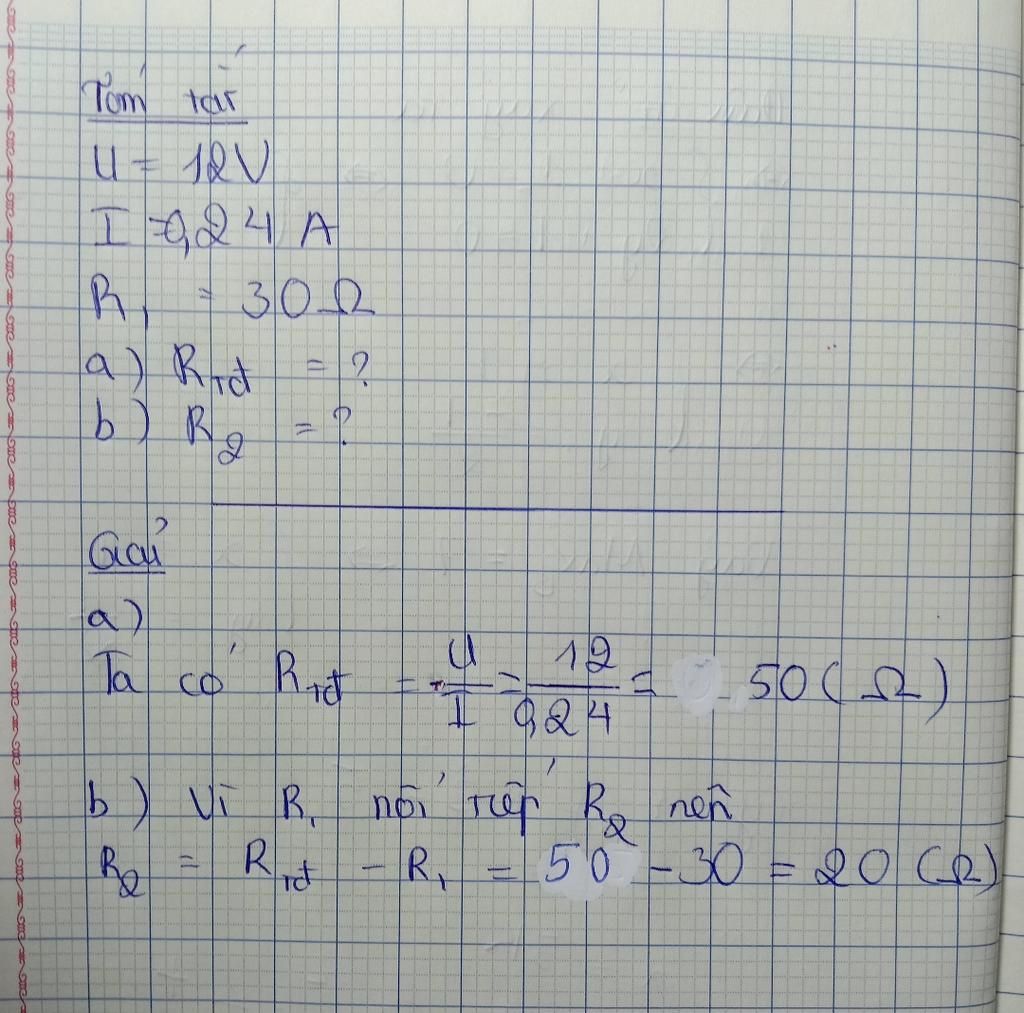 Tóm tắt
U = 12V
I = 0,24 A
R₁ = 30Ω
a) Rtđ = ?
b) R₂ = ?
Giải
a)
Ta có Rtđ = U/I = 12/0,24 = 50 (Ω)
b) Vì R₁ nối tiếp R₂ nên
R₂ = Rtđ - R₁ = 50 - 30 = 20 (Ω)